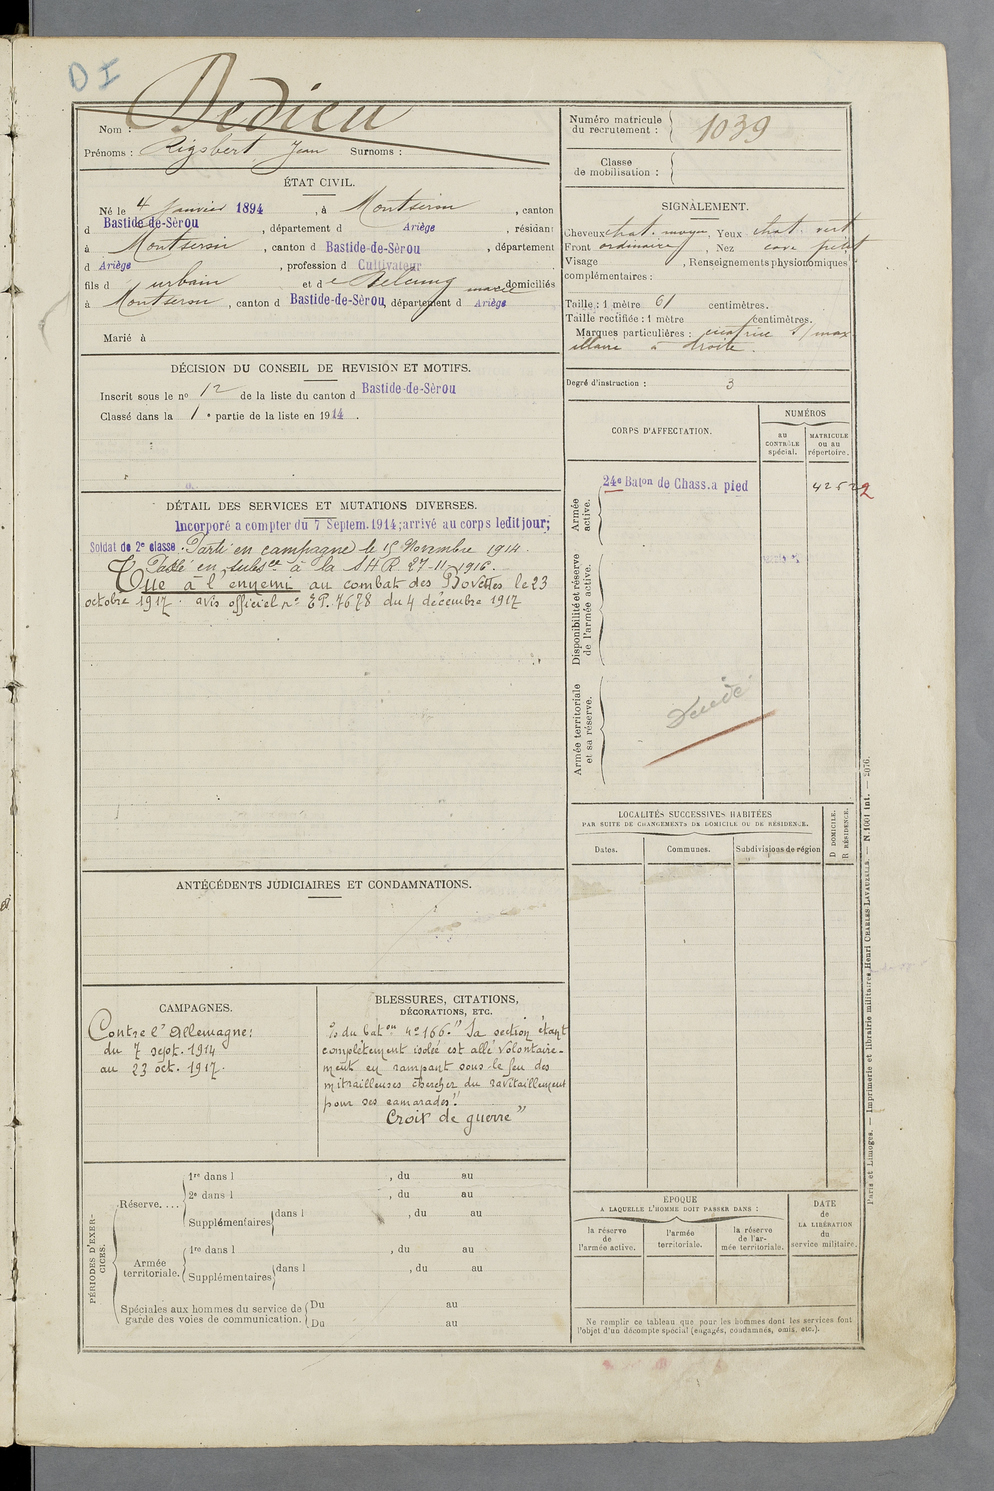 DI
Nom : Dedieu
Prénoms : Rigobert Jean Surnoms :
Numéro matricule
du recrutement : 1039
Classe
de mobilisation :
ÉTAT CIVIL.
Né le 4 Janvier 1894, à Montseron, canton
d Bastide-de-Sérou, département d Ariège, résidant
à Montseron, canton d Bastide-de-Sérou, département
d Ariège, profession d Cultivateur
fils d urbain et de domiciliés
à Montseron, canton d Bastide-de-Sérou, département d Ariège
Marié à
SIGNALEMENT.
Cheveux chat. moyen, Yeux chat. vert
Front ordinaire, Nez cave petit
Visage , Renseignements physionomiques
complémentaires :
Taille : 1 mètre 61 centimètres.
Taille rectifiée : 1 mètre centimètres.
Marques particulières : cicatrice s/ max
illaire à droite.
Degré d'instruction : 3
DÉCISION DU CONSEIL DE REVISION ET MOTIFS.
Inscrit sous le nº 12 de la liste du canton d Bastide-de-Sérou
Classé dans la 1e partie de la liste en 1914.
CORPS D'AFFECTATION.
NUMÉROS
au
CONTRÔLE
spécial.
MATRICULE
ou au
répertoire.
Armée
active.
24e Baton de Chass. a pied
Disponibilité et réserve
de l'armée active.
Armée territoriale
et sa réserve.
Décédé
DÉTAIL DES SERVICES ET MUTATIONS DIVERSES.
Incorporé a compter du 7 Septem. 1914; arrivé au corps ledit jour;
Soldat de 2e classe. Parti en campagne le 15 Novembre 1914.
Passé en subsce à la SHR 27-11-1916.
Tué à l'ennemi au combat des Bovettes le 23
octobre 1917. avis officiel nº EP. 7678 du 4 décembre 1917
LOCALITÉS SUCCESSIVES HABITÉES
PAR SUITE DE CHANGEMENTS DE DOMICILE OU DE RÉSIDENCE.
Dates.
Communes.
Subdivisions de région
D DOMICILE.
R RÉSIDENCE.
ANTÉCÉDENTS JUDICIAIRES ET CONDAMNATIONS.
CAMPAGNES.
Contre l'Allemagne:
du 7 sept. 1914
au 23 oct. 1917.
BLESSURES, CITATIONS,
DÉCORATIONS, ETC.
% du baton nº 166. "Sa section étant
complètement isolée est allé volontaire-
ment en rampant sous le feu des
mitrailleuses chercher du ravitaillement
pour ses camarades."
Croix de guerre"
PÉRIODES D'EXER-
CICES.
Réserve....
1re dans l , du au
2e dans l , du au
Supplémentaires dans l , du au
Armée
territoriale.
1re dans l , du au
Supplémentaires dans l , du au
Spéciales aux hommes du service de
garde des voies de communication.
Du au
Du au
ÉPOQUE
A LAQUELLE L'HOMME DOIT PASSER DANS :
la réserve
de
l'armée active.
l'armée
territoriale.
la réserve
de l'ar-
mée territoriale.
DATE
de
LA LIBÉRATION
du
service militaire.
Ne remplir ce tableau que pour les hommes dont les services font
l'objet d'un décompte spécial (engagés, condamnés, omis, etc.).
Paris et Limoges. — Imprimerie et librairie militaires Henri CHARLES-LAVAUZELLE. — N. 1001 int. — 2076.